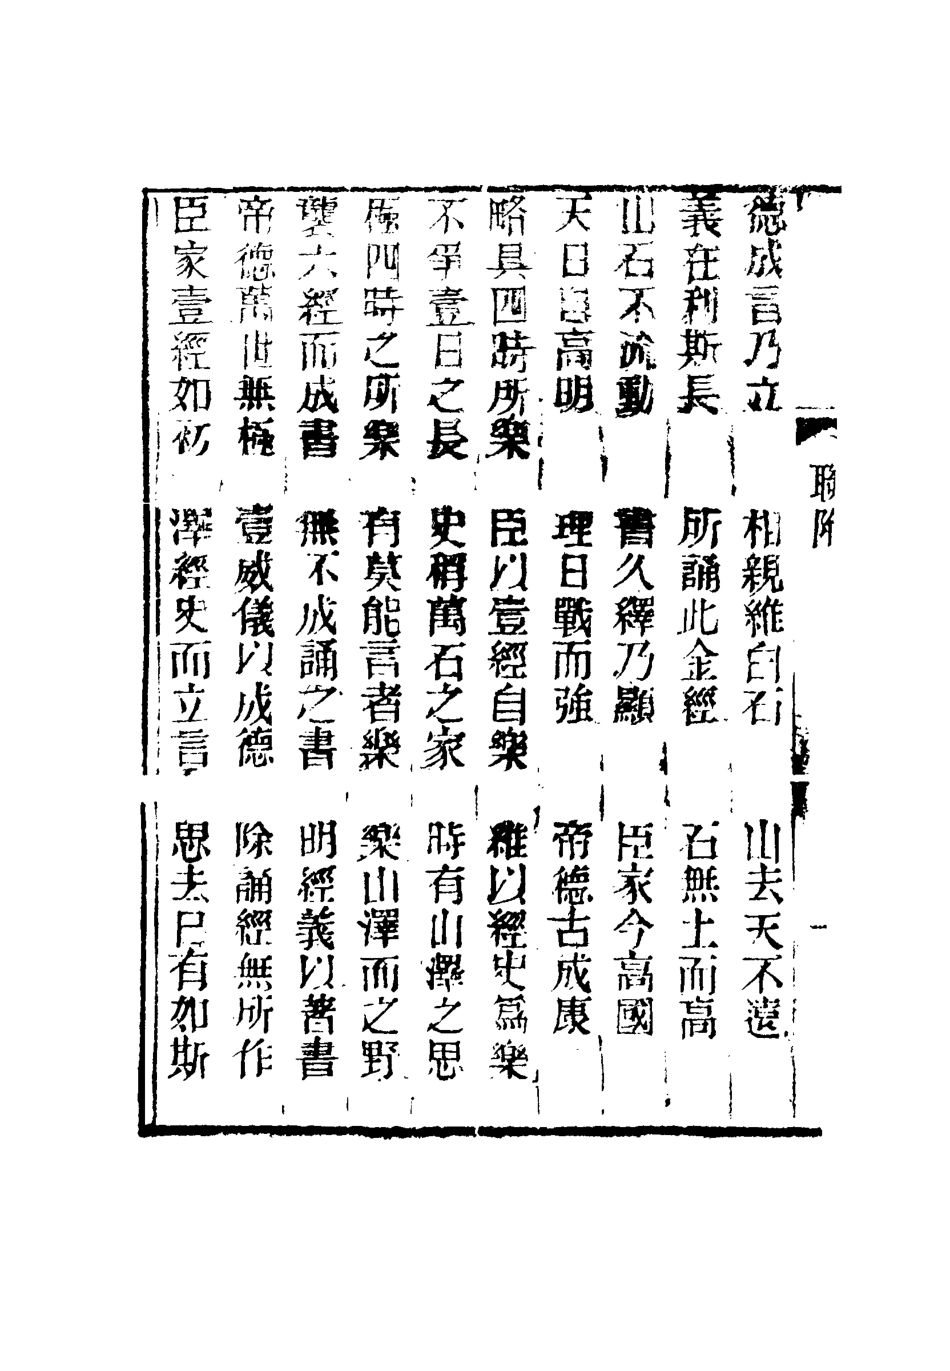 德成言乃立 相親維白石 山去天不遠
義在利斯長 所誦此金經 石無土而高
山石不流動 書久繹乃顯 臣家今高國
天日高明 理日戰而強 帝德古成康
略具四時所樂 臣以壹經自樂 維以經史爲樂
不爭壹日之長 史稱萬石之家 時有山澤之思
極四時之所樂 有莫能言者樂 樂山澤而之野
襲六經而成書 無不成誦之書 明經義以著書
帝德萬世無極 壹威儀以成德 除誦經無所作
臣家壹經如初 澤經史而立言 思去日有如斯